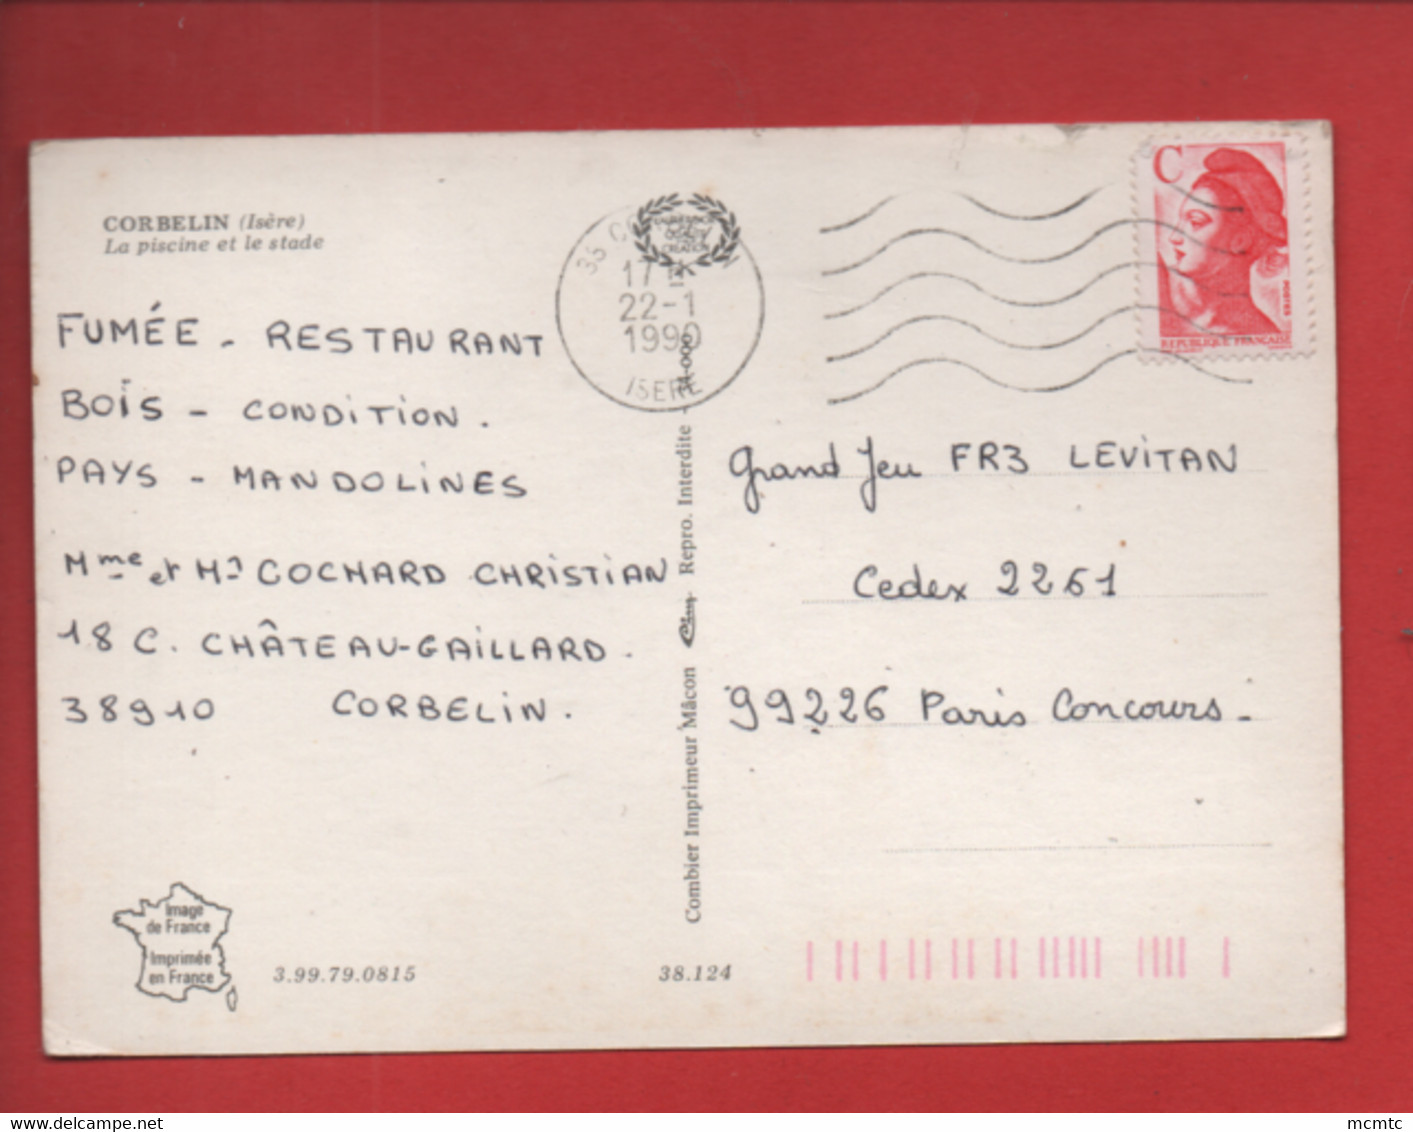 CORBELIN (Isère)
La piscine et le stade
FUMÉE - RESTAURANT
BOIS - CONDITION.
PAYS - MANDOLINES
Mme et Mr COCHARD CHRISTIAN
18 C. CHÂTEAU-GAILLARD.
38910 CORBELIN.
Image
de France
Imprimée
en France
3.99.79.0815
38.124
Combier Imprimeur Mâcon Repro. Interdite -
CREATION
22-1
1990
ISERE
C
POSTES
REPUBLIQUE FRANÇAISE
Grand Jeu FR3 LEVITAN
Cedex 2261
99226 Paris Concours -
www.delcampe.net
mcmtc